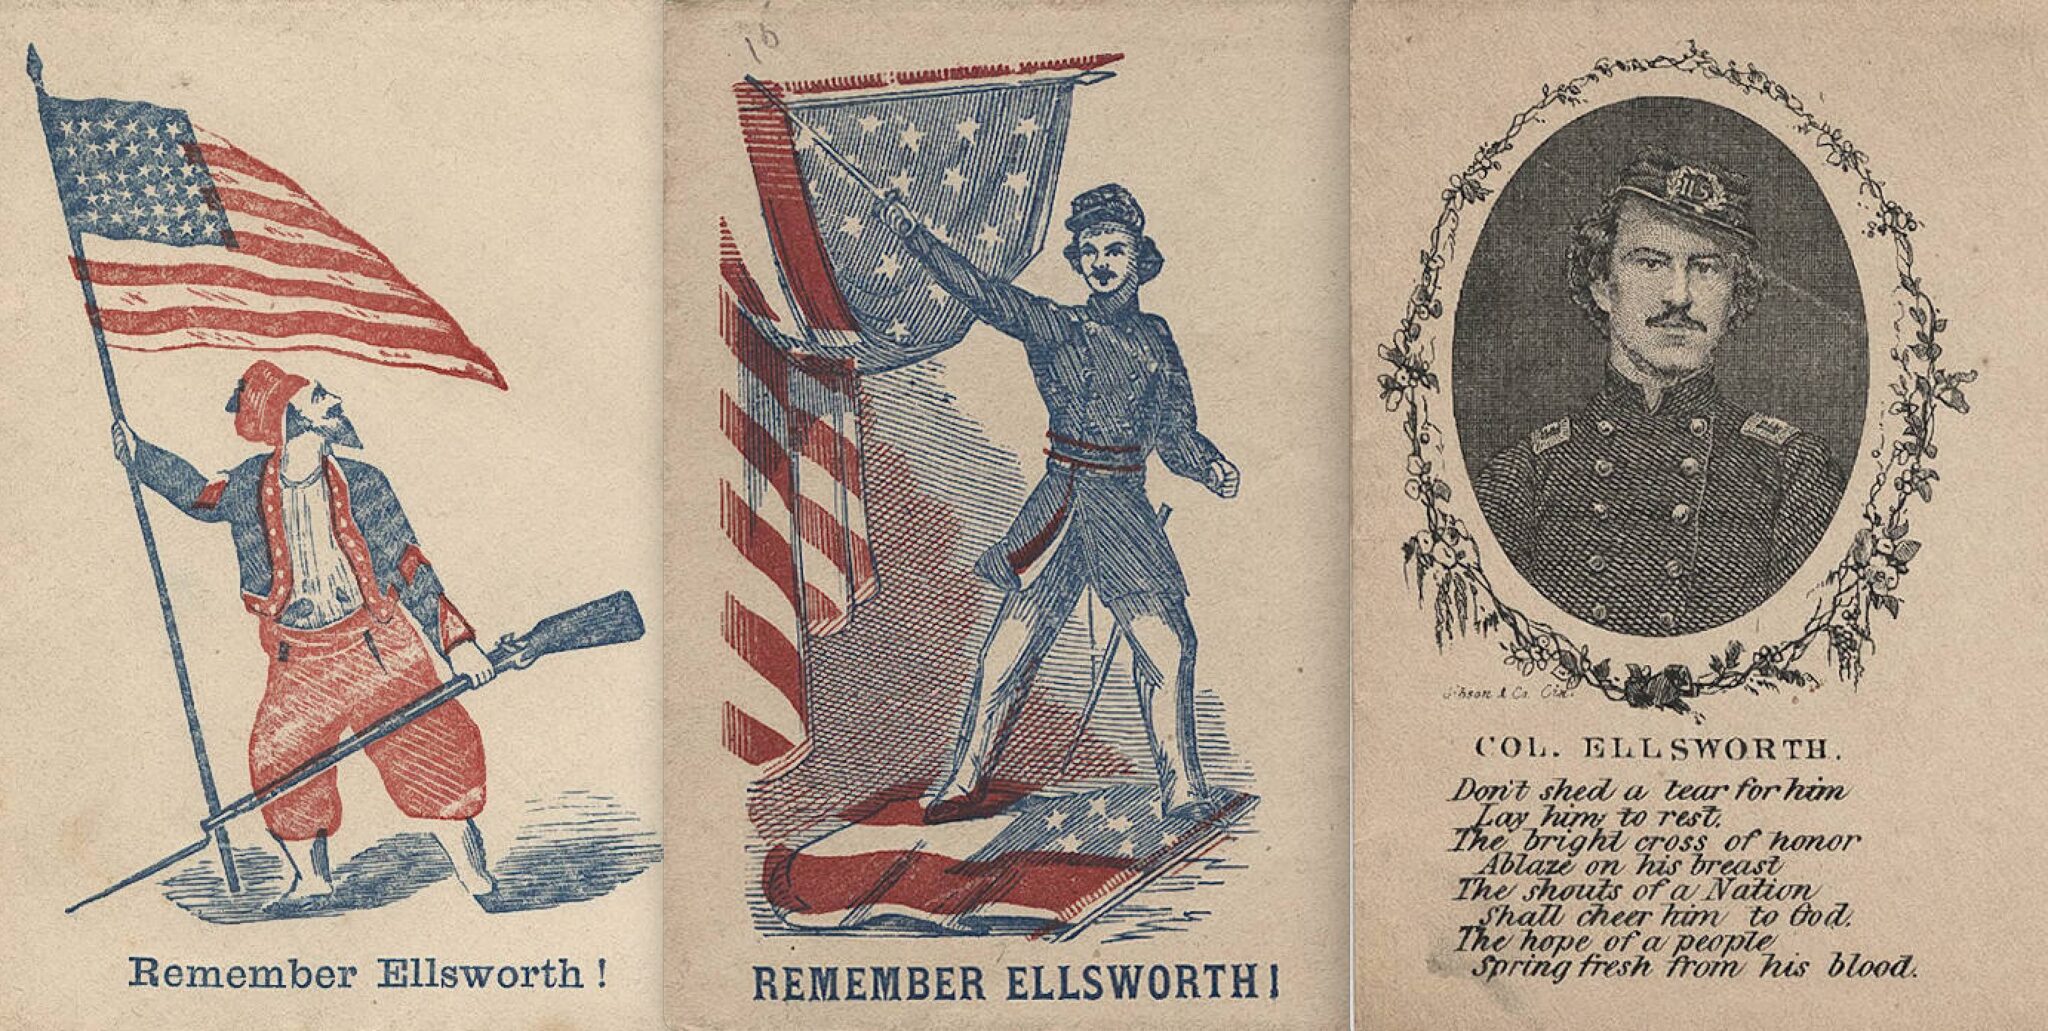 Remember Ellsworth!
16
REMEMBER ELLSWORTH!
Gibson & Co. Cin.
COL. ELLSWORTH.
Don't shed a tear for him
Lay him to rest.
The bright cross of honor
Ablaze on his breast
The shouts of a Nation
Shall cheer him to God.
The hope of a people
Spring fresh from his blood.